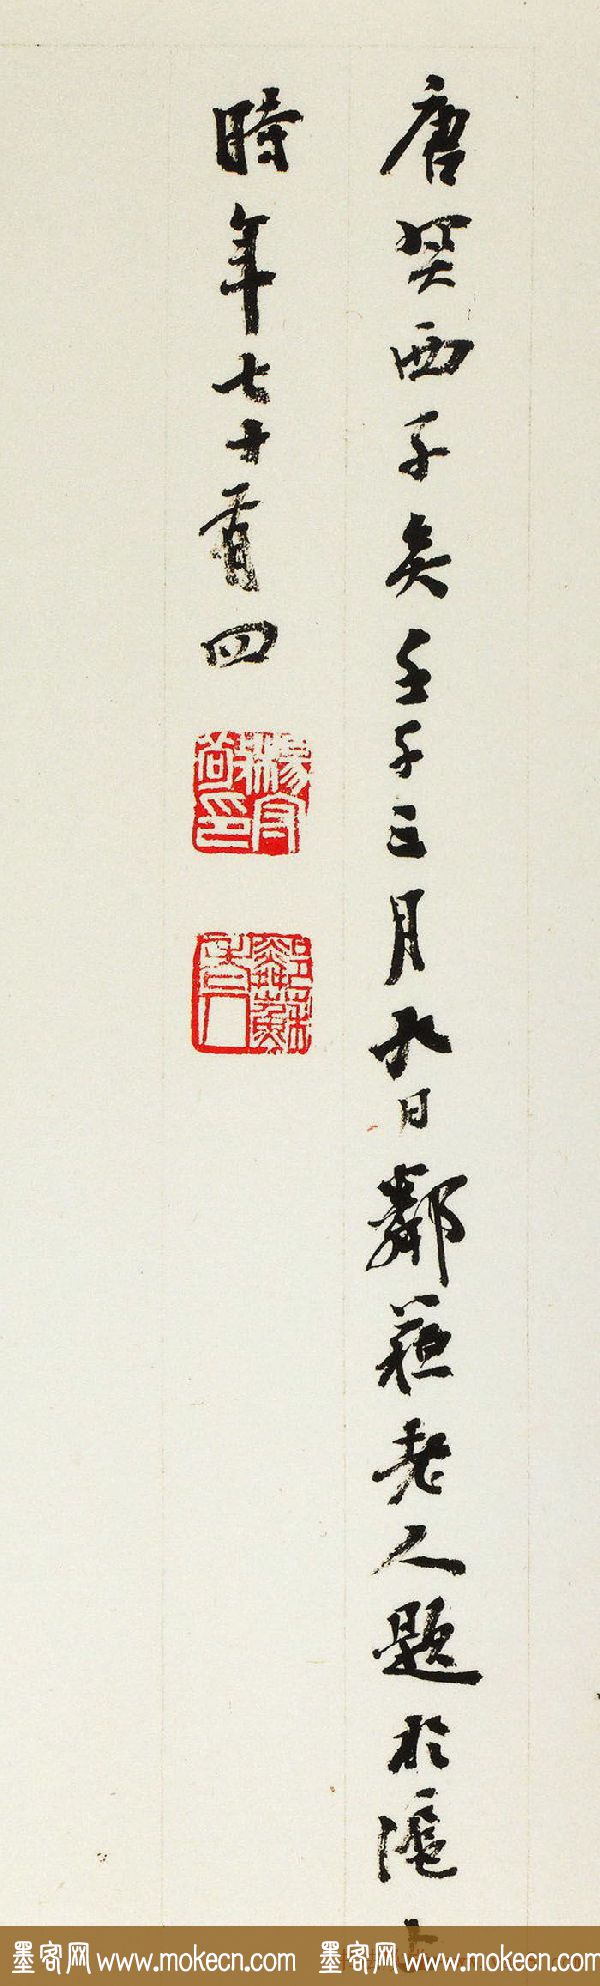 唐奚西子矣壬子三月九日鄰蘇老人題於滬上
時年七十有四
楊守敬印
鄰蘇老人
墨客网 www.mokecn.com 墨客网 www.mokecn.com